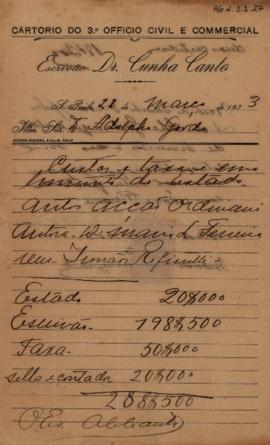 AG 2.3.3.27
CARTORIO DO 3.º OFFICIO CIVIL E COMMERCIAL
Escrivão Dr. Cunha Canto
S. Paulo, 22 de Março de 1923
Illm. Snr. Dr. Adolpho Gordo
Custas, taxa e emo
do Estado
autos acção Ordinaria
Autora D. Maria Ferreira
reus Irmãos
Estado 20$000
Escrivão 198$500
Taxa 50$000
sello e contador 20$000
288$500
O Esc.